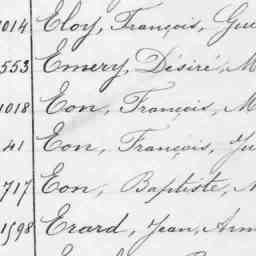 1014 Eloy, François, Gus
553 Emery, Désiré, M
1018 Eon, François, M
41 Eon, François, Ju
717 Eon, Baptiste,
1598 Erard, Jean, Arm